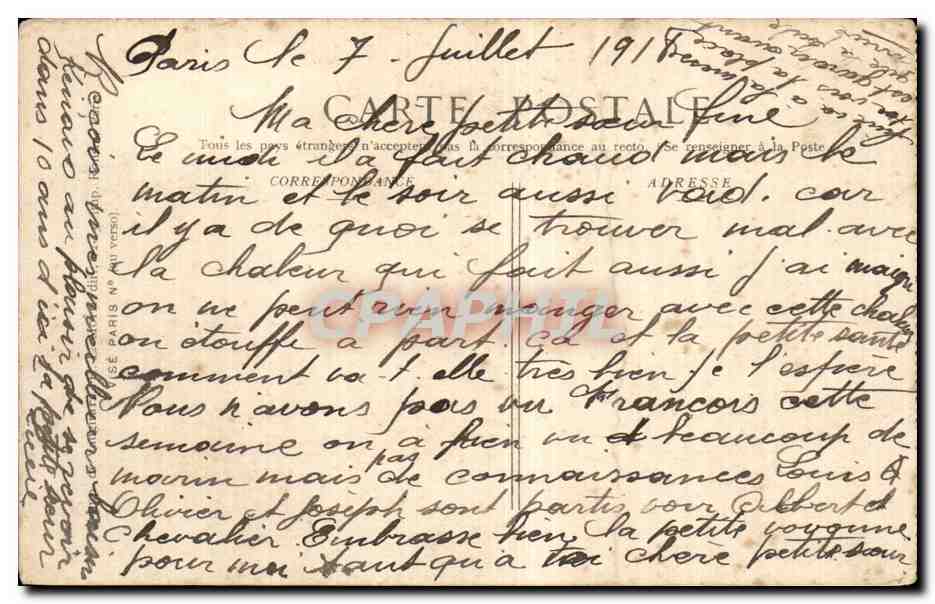 Paris le 7 Juillet 191
CARTE POSTALE
Ma chère petite sœur fine
Tous les pays étrangers n'acceptent pas la correspondance au recto. (Se renseigner à la Poste
Ce midi il a fait chaud mais le
CORRESPONDANCE
ADRESSE
matin et le soir aussi froid. car
il y a de quoi se trouver mal avec
la chaleur qui fait aussi j'ai maigri
on ne peut rien manger avec cette chaleur
on étouffe a part. ça et la petite santé
comment va-t elle très bien je l'espère
Nous n'avons pas vu François cette
semaine on a bien vu beaucoup de
marin mais pas de connaissances Louis &
Olivier et Joseph sont partis voir Gilbert et
Chevalier Embrasse bien la petite
pour moi tant qu'a toi chere petite sœur
Reçois mes meilleurs baisers
au plaisir de se revoir
dans 10 ans d'ici ta petite sœur
VISÉ PARIS N°
au verso)
CPAPHIL